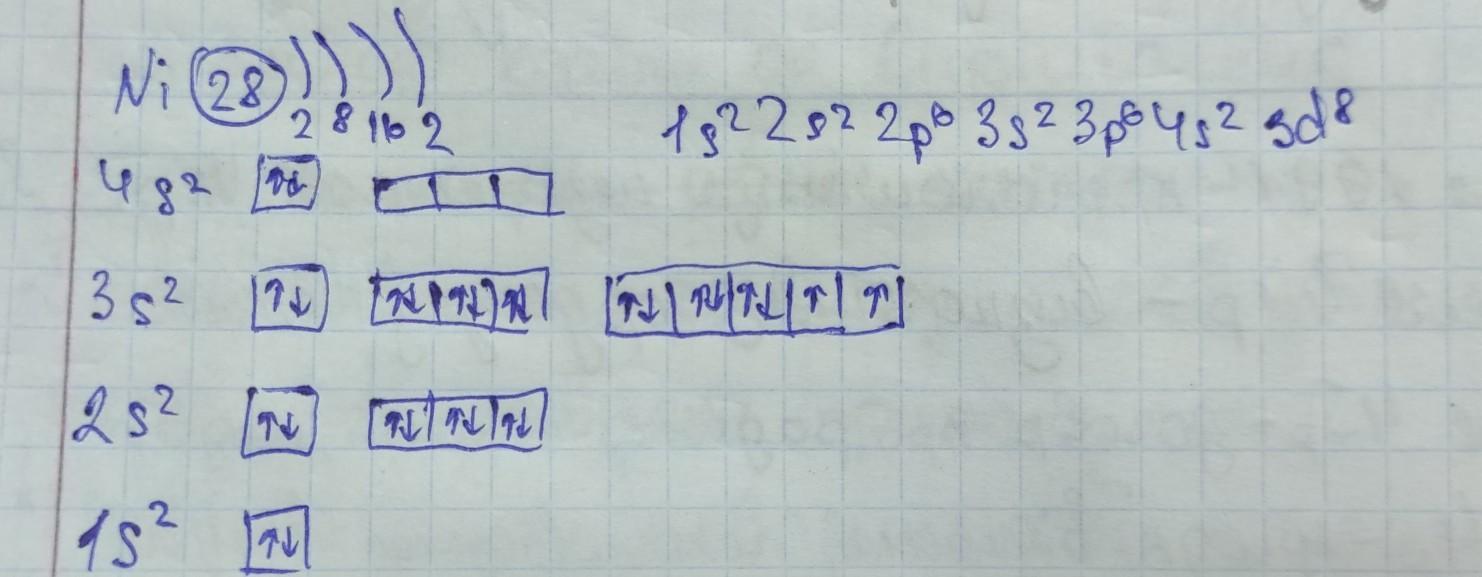 Ni 28 ) ) ) )
2 8 16 2
1s² 2s² 2p⁶ 3s² 3p⁶ 4s² 3d⁸
4s² ↑↓
3s² ↑↓ ↑↓ ↑↓ ↑↓ ↑↓ ↑↓ ↑↓ ↑ ↑
2s² ↑↓ ↑↓ ↑↓ ↑↓
1s² ↑↓